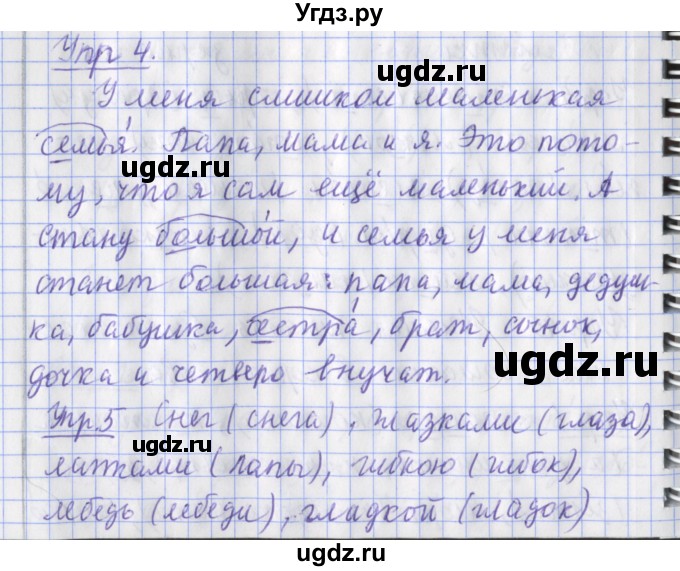 Угдз.ру
Упр 4.
ugdz.ru
У меня слишком маленькая
семья. Папа, мама и я. Это пото-
ugdz.ru
му, что я сам ещё маленький. А
стану большой, и семья у меня
станет большая: папа, мама, дедуш-
ка, бабушка, сестра, брат, сынок,
ugdz.ru
дочка и четверо внучат.
Упр.5 Снег (снега), глазками (глаза),
ugdz.ru
лапками (лапы), гибкою (гибок),
лебедь (лебеди), гладкой (гладок)
ugdz.ru